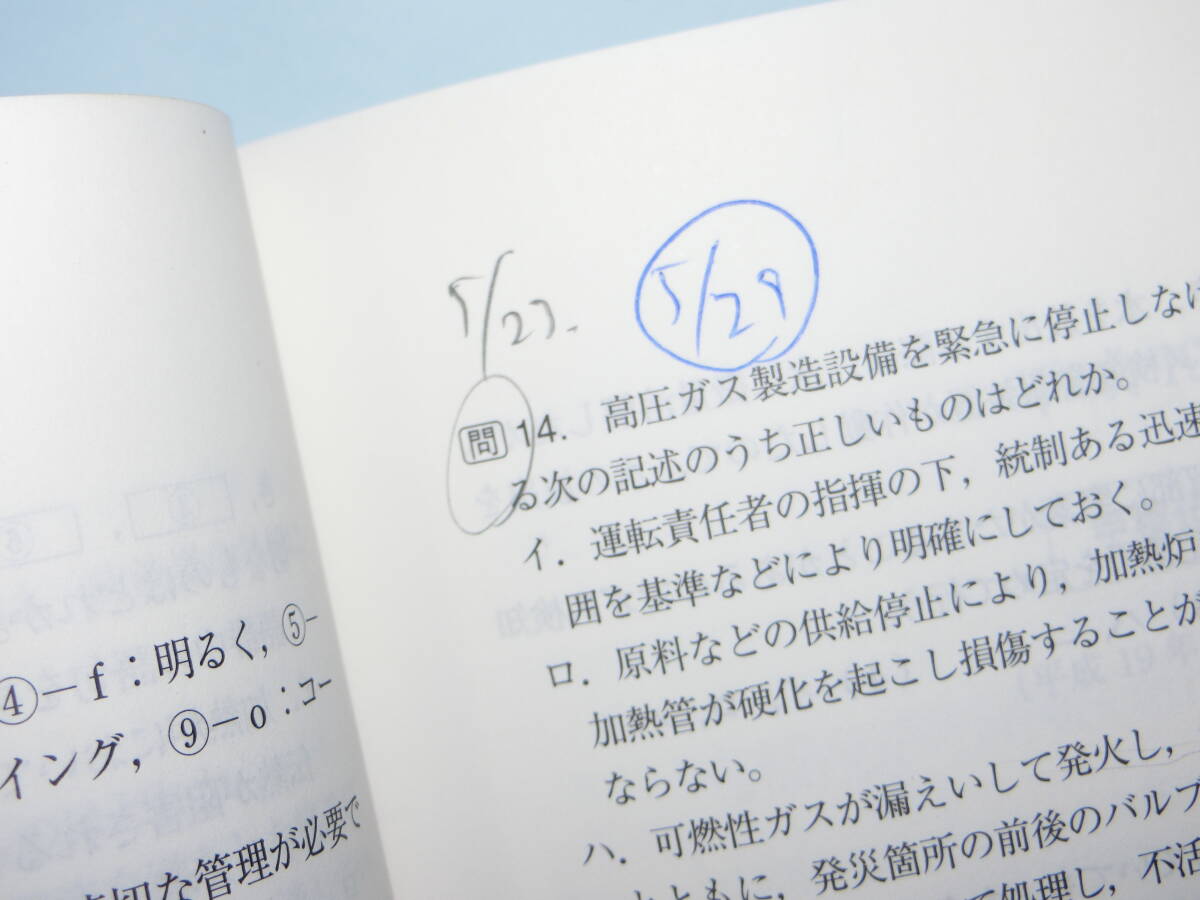 ④-f：明るく，⑤-
イング，⑨-o：コー
切な管理が必要で
5/23.
5/29
問14．高圧ガス製造設備を緊急に停止しなけ
る次の記述のうち正しいものはどれか。
イ．運転責任者の指揮の下，統制ある迅速
囲を基準などにより明確にしておく。
ロ．原料などの供給停止により，加熱炉
加熱管が硬化を起こし損傷することが
ならない。
ハ．可燃性ガスが漏えいして発火し，
とともに，発災箇所の前後のバルブ
て処理し，不活